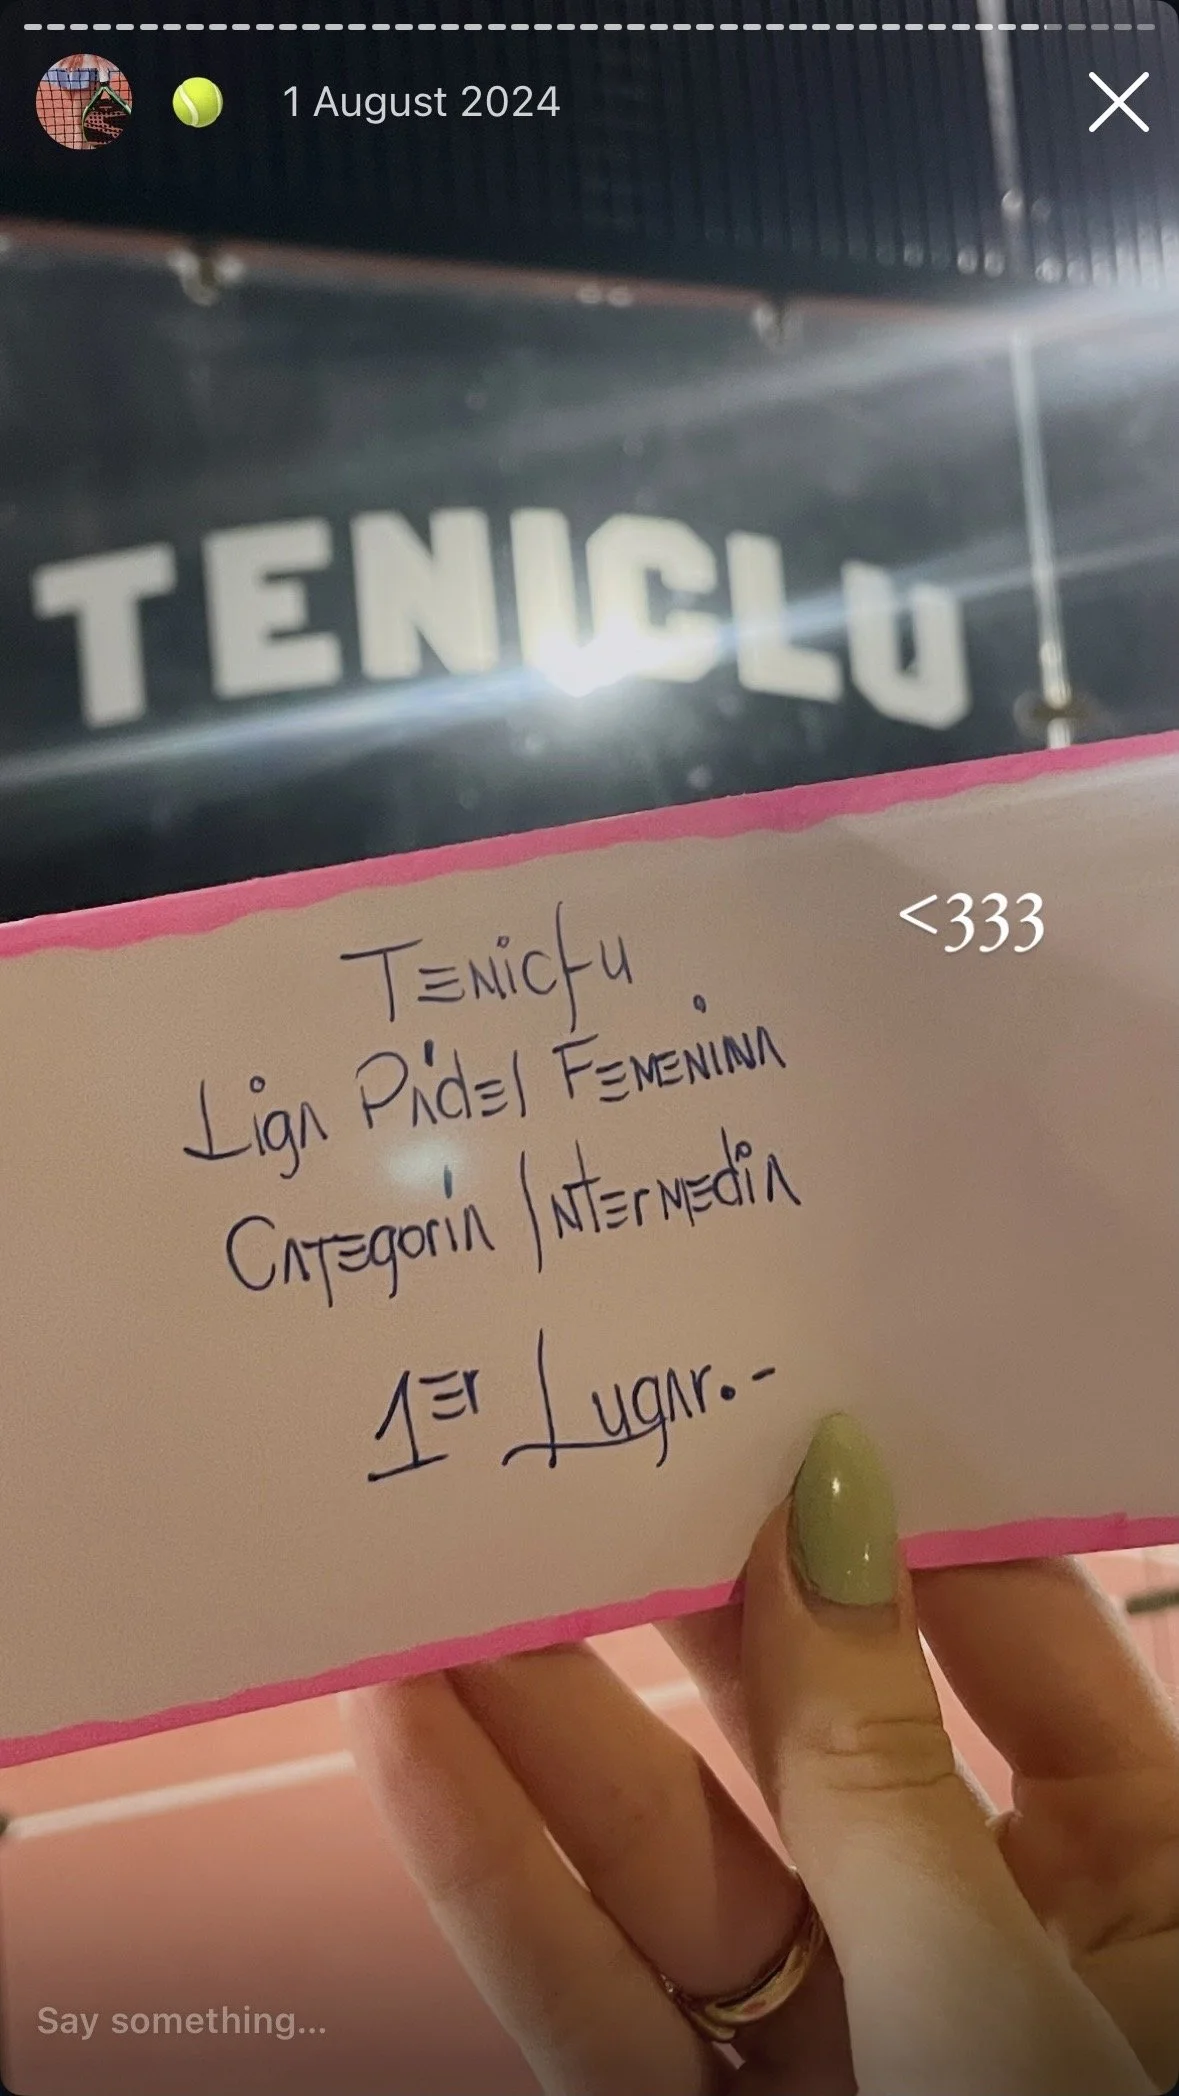 1 August 2024
TENICLU
<333
Teniclu
Liga Pádel Femenina
Categoría Intermedia
1er Lugar.-
Say something...